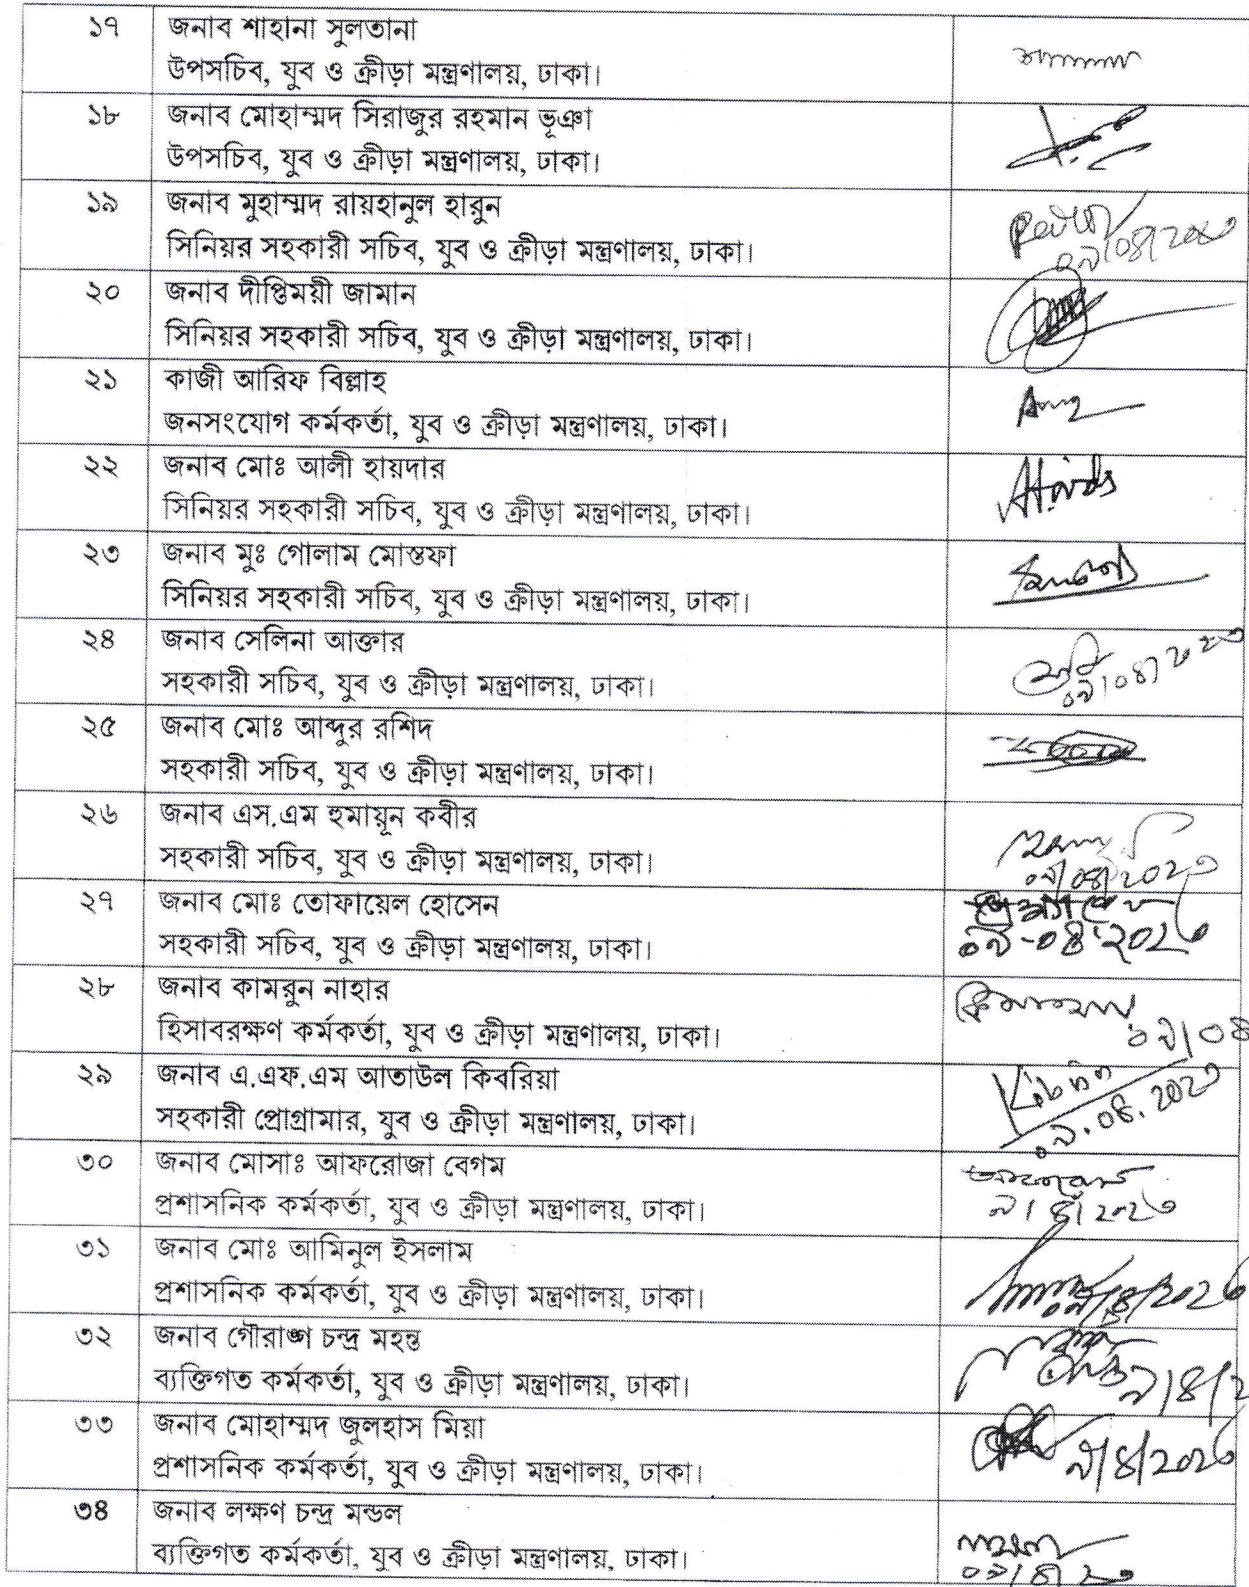 ১৭ জনাব শাহানা সুলতানা
উপসচিব, যুব ও ক্রীড়া মন্ত্রণালয়, ঢাকা।
১৮ জনাব মোহাম্মদ সিরাজুর রহমান ভূঞা
উপসচিব, যুব ও ক্রীড়া মন্ত্রণালয়, ঢাকা।
১৯ জনাব মুহাম্মদ রায়হানুল হারুন
সিনিয়র সহকারী সচিব, যুব ও ক্রীড়া মন্ত্রণালয়, ঢাকা।
২০ জনাব দীপ্তিময়ী জামান
সিনিয়র সহকারী সচিব, যুব ও ক্রীড়া মন্ত্রণালয়, ঢাকা।
২১ কাজী আরিফ বিল্লাহ
জনসংযোগ কর্মকর্তা, যুব ও ক্রীড়া মন্ত্রণালয়, ঢাকা।
২২ জনাব মোঃ আলী হায়দার
সিনিয়র সহকারী সচিব, যুব ও ক্রীড়া মন্ত্রণালয়, ঢাকা।
২৩ জনাব মুঃ গোলাম মোস্তফা
সিনিয়র সহকারী সচিব, যুব ও ক্রীড়া মন্ত্রণালয়, ঢাকা।
২৪ জনাব সেলিনা আক্তার
সহকারী সচিব, যুব ও ক্রীড়া মন্ত্রণালয়, ঢাকা।
২৫ জনাব মোঃ আব্দুর রশিদ
সহকারী সচিব, যুব ও ক্রীড়া মন্ত্রণালয়, ঢাকা।
২৬ জনাব এস.এম হুমায়ূন কবীর
সহকারী সচিব, যুব ও ক্রীড়া মন্ত্রণালয়, ঢাকা।
০৯/০৪/২০২৩
২৭ জনাব মোঃ তোফায়েল হোসেন
সহকারী সচিব, যুব ও ক্রীড়া মন্ত্রণালয়, ঢাকা।
০৯-০৪-২০২৩
২৮ জনাব কামরুন নাহার
হিসাবরক্ষণ কর্মকর্তা, যুব ও ক্রীড়া মন্ত্রণালয়, ঢাকা।
২৯ জনাব এ.এফ.এম আতাউল কিবরিয়া
সহকারী প্রোগ্রামার, যুব ও ক্রীড়া মন্ত্রণালয়, ঢাকা।
০৯.০৪.২০২৩
৩০ জনাব মোসাঃ আফরোজা বেগম
প্রশাসনিক কর্মকর্তা, যুব ও ক্রীড়া মন্ত্রণালয়, ঢাকা।
৯/৪/২০২৩
৩১ জনাব মোঃ আমিনুল ইসলাম
প্রশাসনিক কর্মকর্তা, যুব ও ক্রীড়া মন্ত্রণালয়, ঢাকা।
৩২ জনাব গৌরাঙ্গ চন্দ্র মহন্ত
ব্যক্তিগত কর্মকর্তা, যুব ও ক্রীড়া মন্ত্রণালয়, ঢাকা।
৩৩ জনাব মোহাম্মদ জুলহাস মিয়া
প্রশাসনিক কর্মকর্তা, যুব ও ক্রীড়া মন্ত্রণালয়, ঢাকা।
৯/৪/২০২৩
৩৪ জনাব লক্ষণ চন্দ্র মন্ডল
ব্যক্তিগত কর্মকর্তা, যুব ও ক্রীড়া মন্ত্রণালয়, ঢাকা।